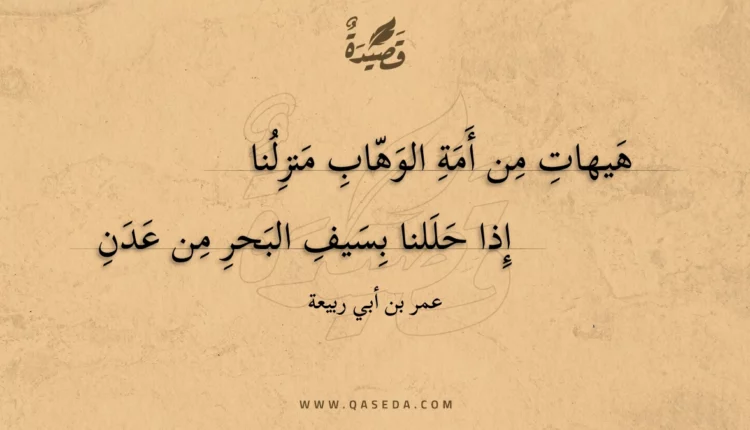 قَصِيْدَةٌ
هَيهاتِ مِن أَمَةِ الوَهّابِ مَنزِلُنا
إِذا حَلَلنا بِسَيفِ البَحرِ مِن عَدَنِ
عمر بن أبي ربيعة
WWW.QASEDA.COM